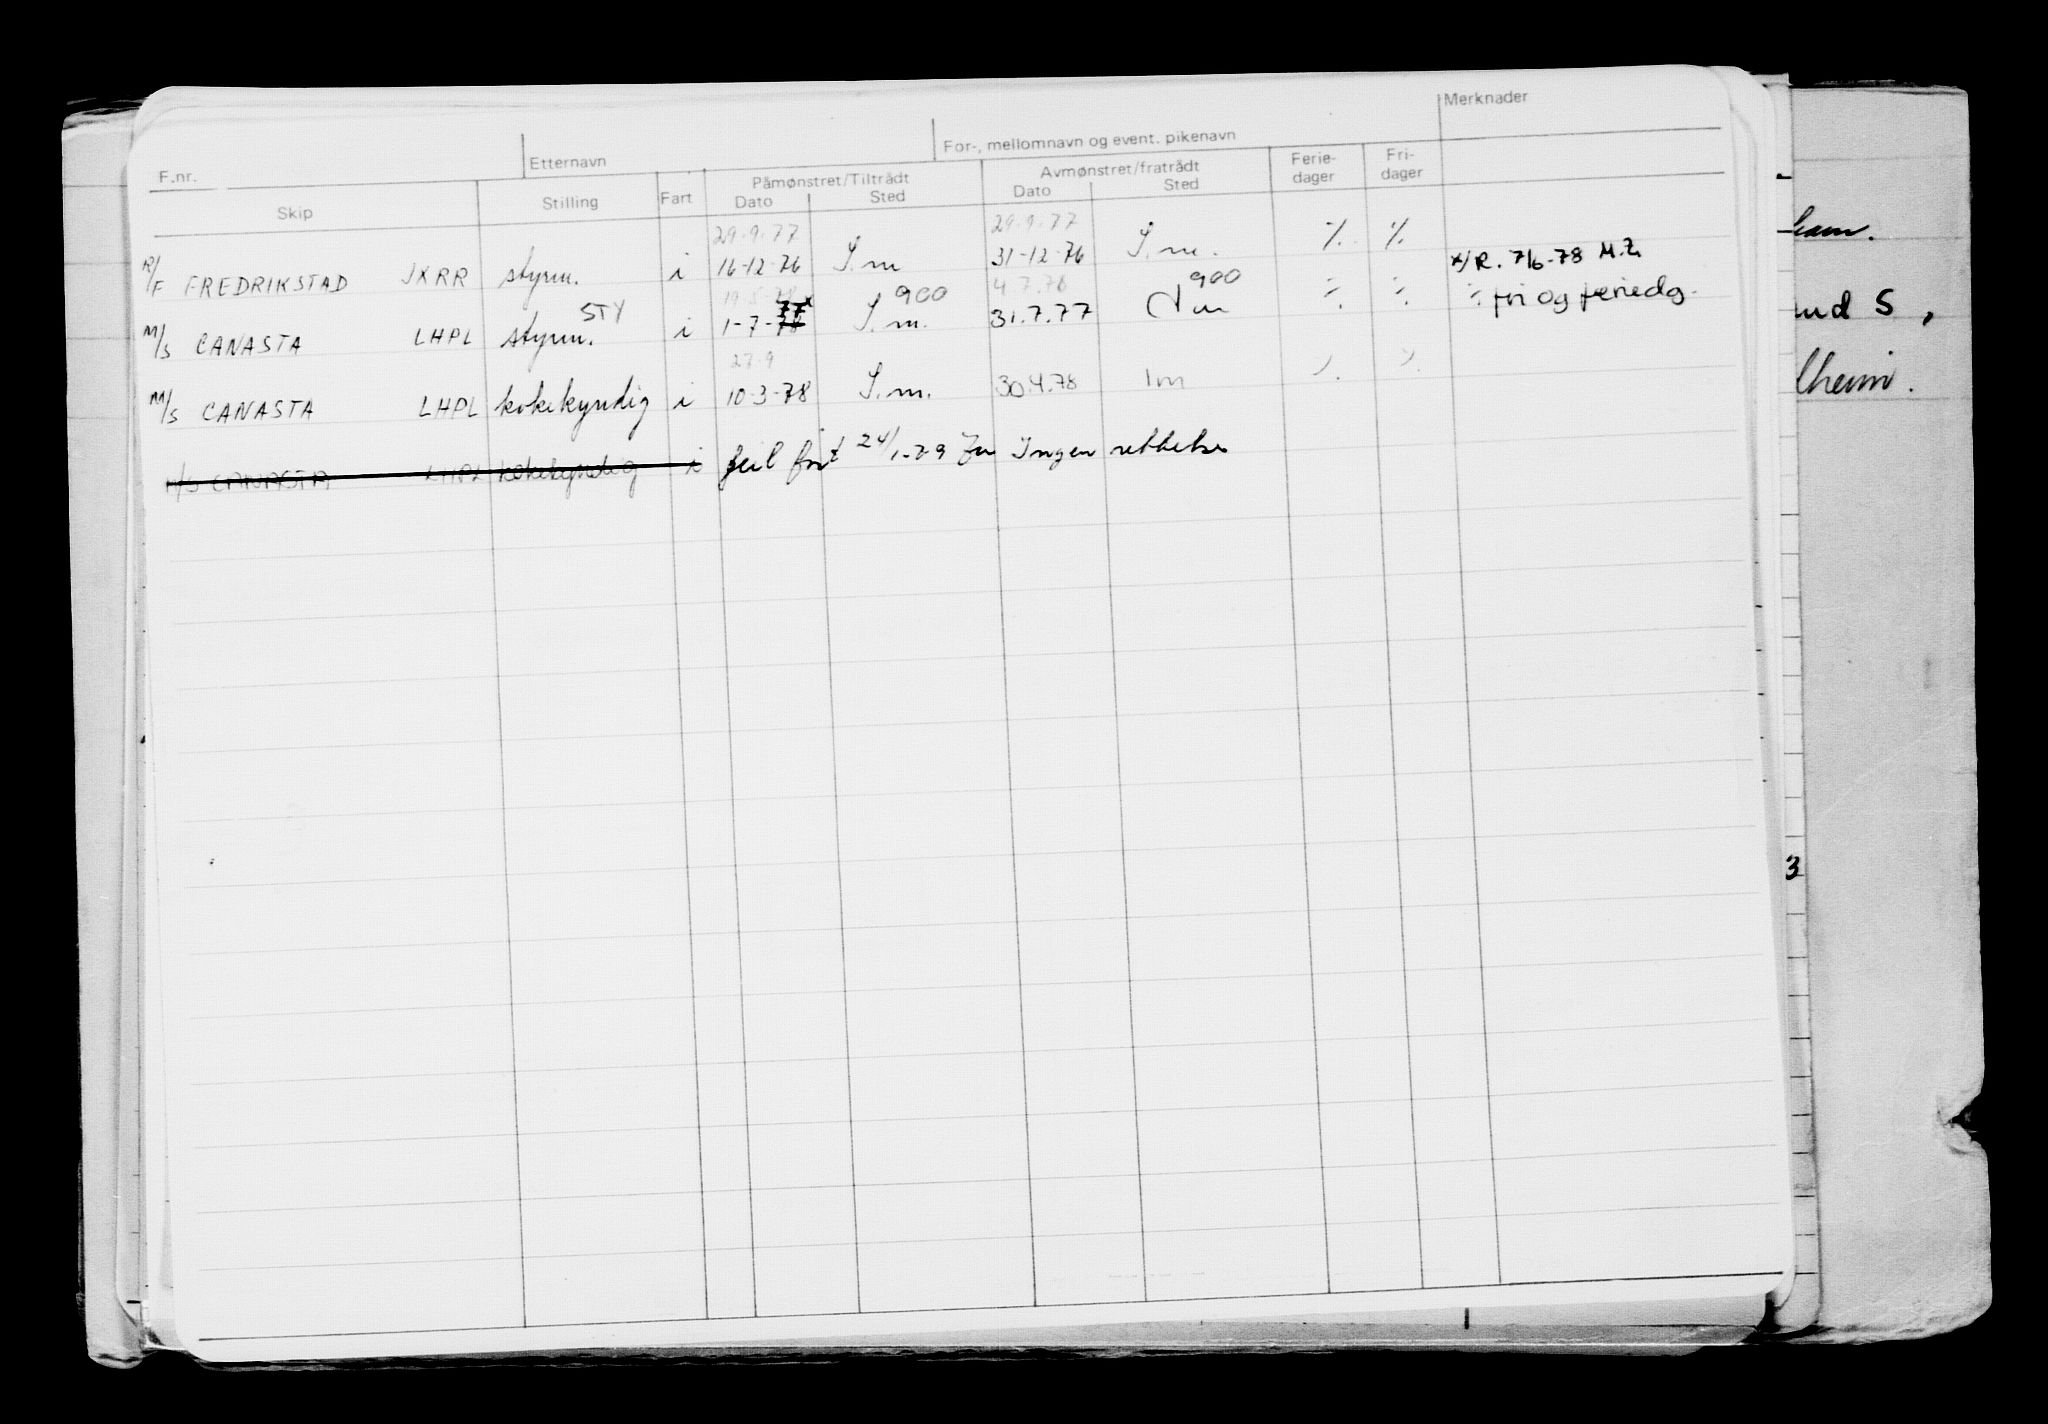 Merknader
F.nr. Etternavn For-, mellomnavn og event. pikenavn
Skip Stilling Fart Påmønstret/Tiltrådt Dato Sted Avmønstret/fratrådt Dato Sted Ferie-dager Fri-dager
29-9-77 29-9-77
R/F FREDRIKSTAD JXRR styrm. i 16-12-76 S.m 31-12-76 S.m. ⁒ ⁒ x/ R. 7/6-78 M.Z.
900 4.7.78 900
STY
M/S CANASTA LHPL styrm. i 1-7-77x S.m. 31.7.77 ⁒ ⁒ ⁒ fri og feriedg.
27.9
M/S CANASTA LHPL kokekyndig i 10-3-78 S.m. 30.4.78 Im
M/S CANASTA LHPL kokekyndig i feil ført 24/1-79 Ingen rettelse
ham.
und S,
lheim.
3